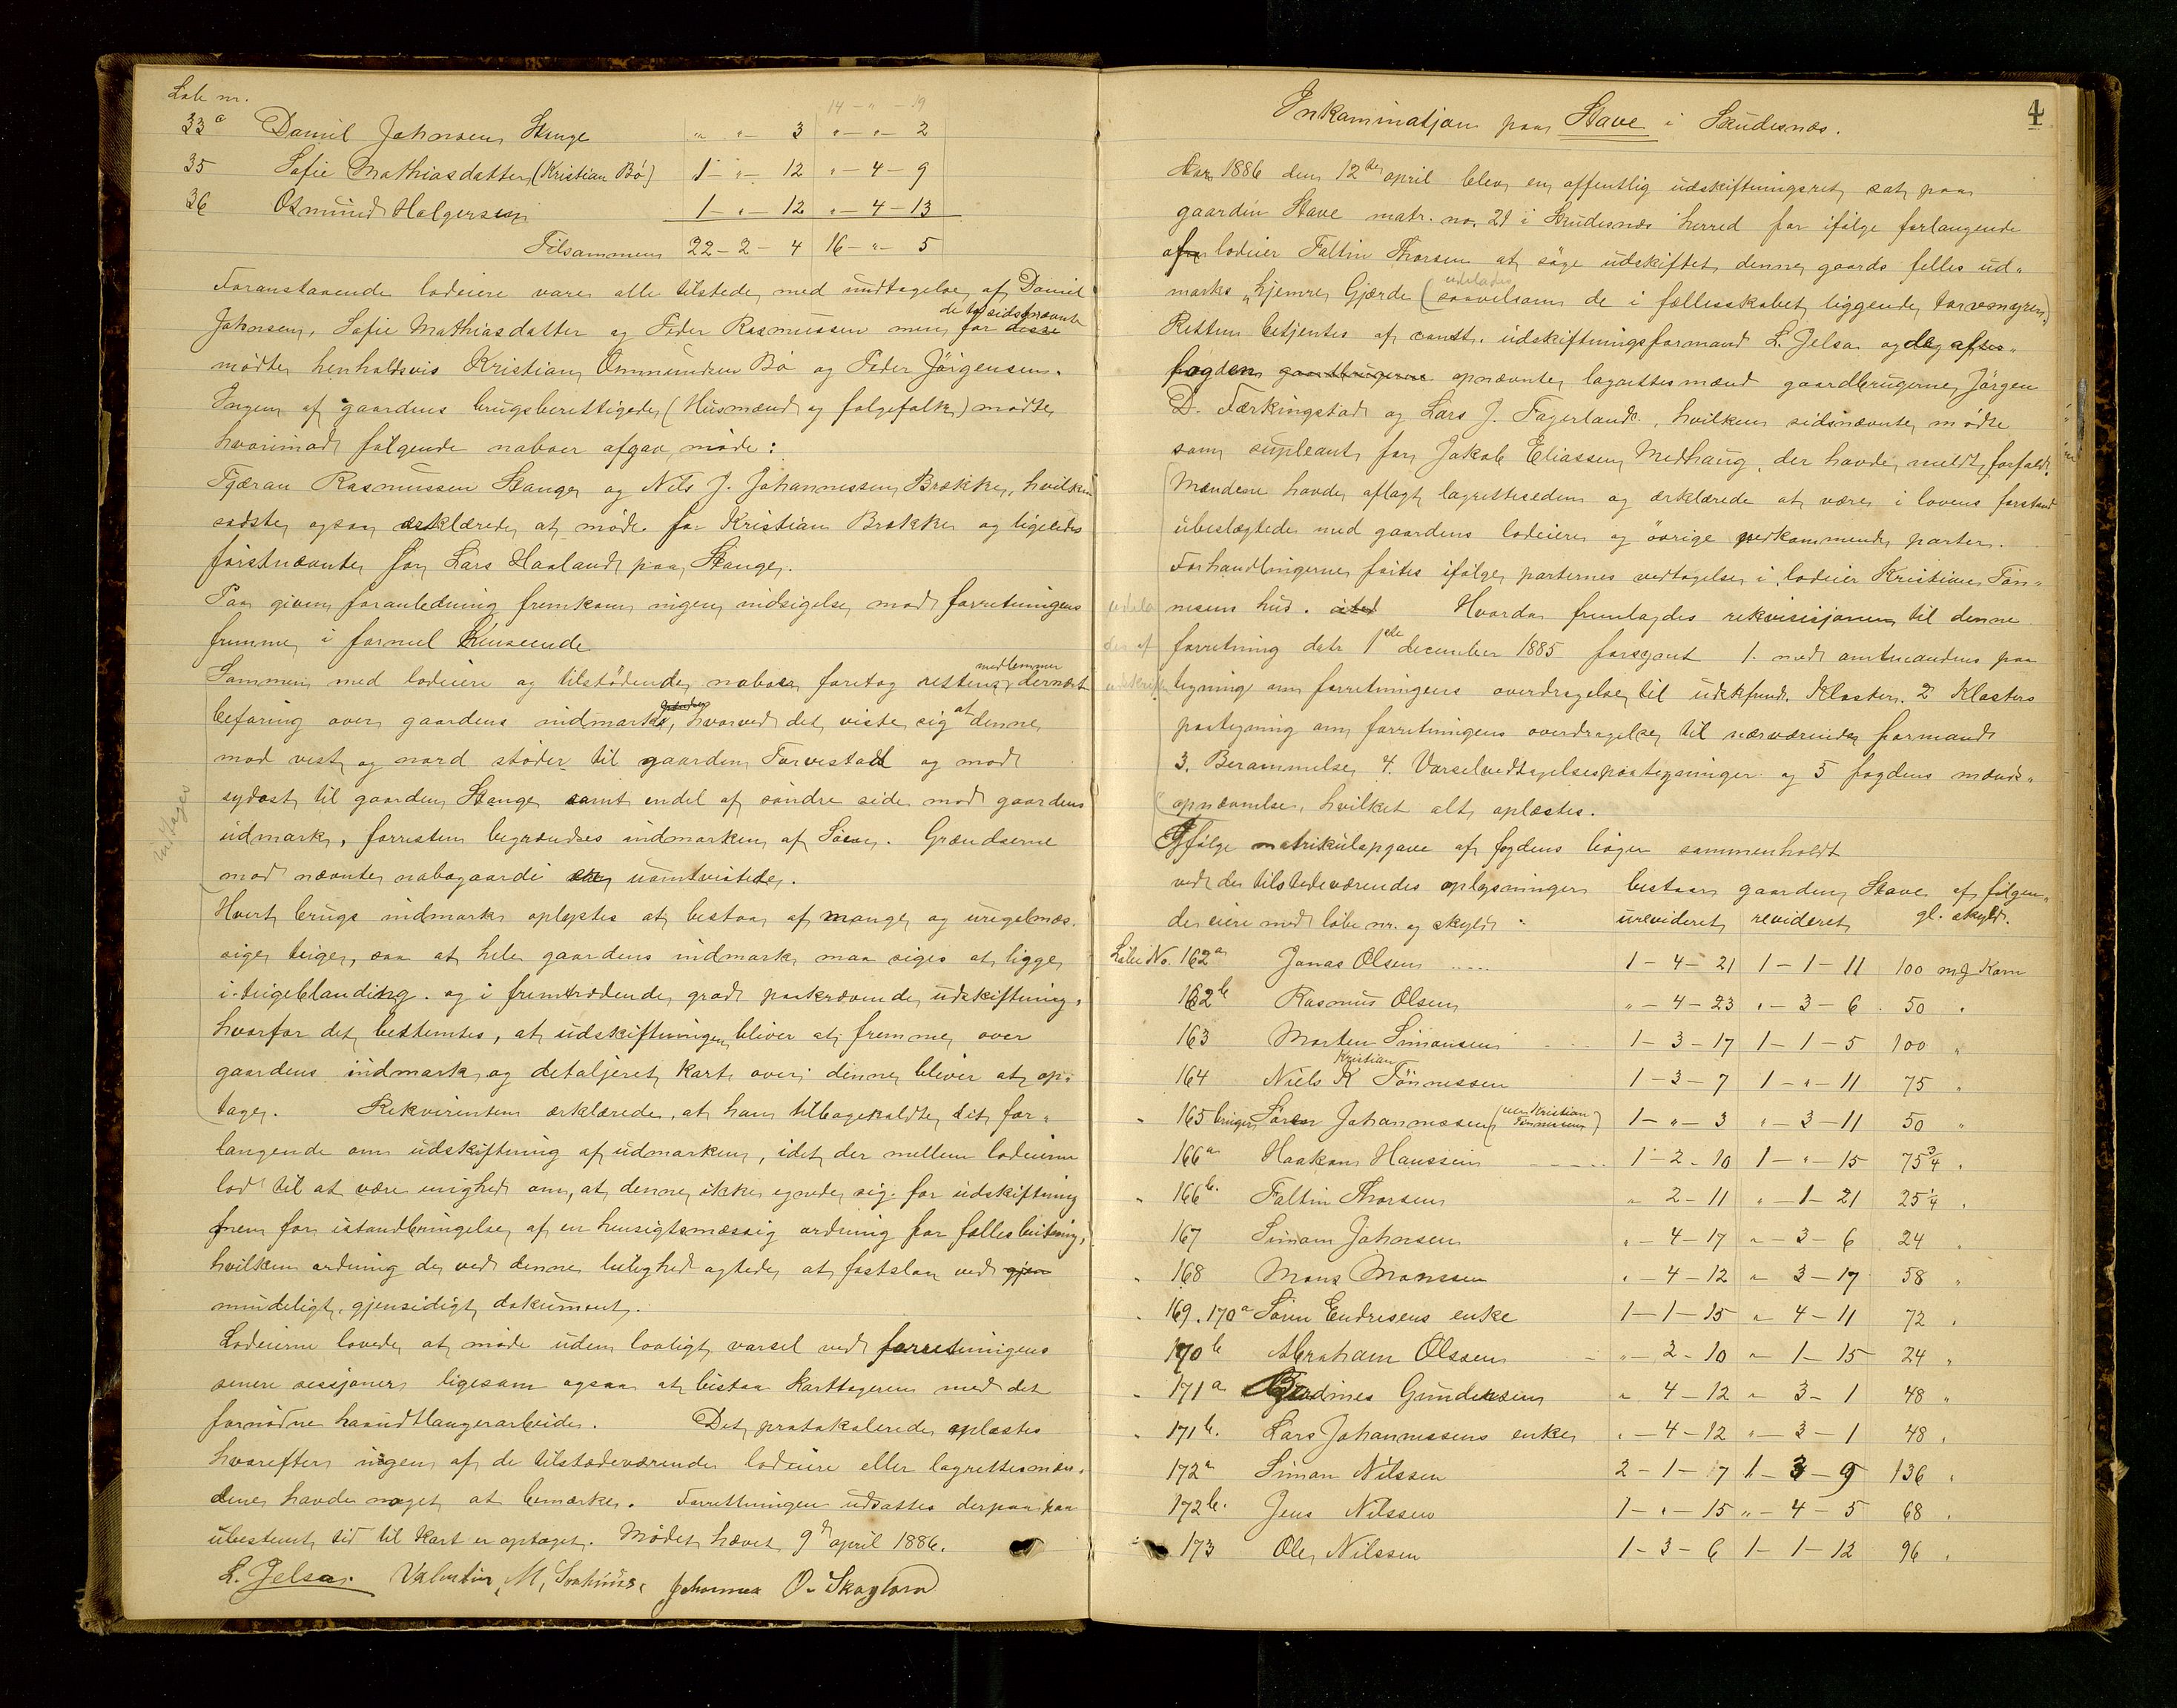 Løb nr.
14 - „ - 19
33c Daniel Johnsen Stange „ „ - 3 „ - „ - 2
35 Sofie Mathiasdatter (Kristian Bö) 1 - „ - 12 „ - 4 - 9
36 Osmund Holgersen 1 - „ - 12 „ - 4 - 13
Tilsammen 22 - 2 - 4 16 - „ - 5
Foranstaaende lodeiere vare alle tilstede med undtagelse af Daniel
Johnsen, Sofie Mathiasdatter og Peder Rasmussen men for disse de to sidstnævnte
mödte henholdsvis Kristian Ommundsen Bö og Peder Jörgensen.
Ingen af gaardens brugsberettigede (Husmænd og folgefolk) mödte,
hvorimod fölgende naboer afgav möde:
Tjæran Rasmussen Stange og Nils J. Johannessen Brekke, hvilken
sidste ogsaa erklærede at möde for Kristian Brekke og ligeledes
förstnævnte for Lars Haaland paa Stange.
Paa given foranledning fremkom ingen indsigelse mod forretningens
fremme i formel henseende
Sammen med lodeiere og tilstödende naboer foretog rettens medlemmer dernæst
befaring over gaardens indmark, hvorved det viste sig at denne
mod vest og nord stöder til gaarden Torvestad og mod
sydost til gaarden Stange samt endel af söndre side mod gaardens
udmark, forresten begrændses indmarken af Söen. Grændserne
mod nævnte nabogaarde er uomtvistede.
indtages
Hvert brugs indmark oplystes at bestaa af mange og uregelmæs-
sige teiger, saa at hele gaardens indmark maa siges at ligge
i teigeblanding og i fremtrædende grad paakrævende udskiftning,
hvorfor det bestemtes, at udskiftningen bliver at fremme over
gaardens indmark og detaljeret kart over denne bliver at op-
tage. Rekvirenten erklærede, at han tilbagekaldte sit for-
langende om udskiftning af udmarken, idet der mellem lodeierne
lod til at være enighed om, at denne ikke egnede sig for udskiftning
men for istandbringelse af en hensigtsmæssig ordning for fælles beitning,
hvilken ordning de ved denne leilighed agtede at fastslaa ved gjen
mindeligt, gjensidigt dokument.
Lodeierne lovede at möde uden lovligt varsel ved forretningens
senere sessjoner ligesom ogsaa at bistaa karttageren med det
fornödne haandtlangerarbeide. Det protokolerede oplæstes
hvorefter ingen af de tilstedeværende lodeiere eller lagrettesmæn-
dene havde noget at bemærke. Forretningen udsattes derpaa paa
ubestemt tid til kart er optaget. Mödet hævet 9de april 1886.
L. Jelsa. Valentin M. Johannes O. Skogland
4
Inkaminatjon paa Stave i Skudesnæs.
Aar 1886 den 12te april blev en offentlig udskiftningsret sat paa
gaarden Stave matr. no. 21 i Skudesnæs herred for ifölge forlangende
af fra lodeier Faltin Thorsen at söge udskiftet denne gaards felles ud-
marks „hjemre Gjærde (saavelsom de i fællesskabet liggende torvemyrer)
udelades
Retten betjentes af const. udskiftningsformand L. Jelsa og de af
fogden gaardbrugerne opnævnte lagrettesmænd gaardbrugerne Jörgen
D. Færkingstad og Lars J. Fagerland, hvilken sidsnævnte mödte
som supleant for Jakob Eliassen Medhaug, der havde meldt forfald.
Mændene havde aflagt lagretteseden og erklærede at være i lovens forstand
ubeslægtede med gaardens lodeiere og övrige vedkommende parter.
Forhandlingerne förtes ifölge parternes vedtagelse i lodeier Kristian Tön-
nesens hus. Hvorda fremlagdes rekvisisjonen til denne
udela
des af
udskriften
forretning datr 1ste december 1885 forsynt 1. med amtmandens paa
tegning om forretningens overdragelse til udskfmd. Kloster. 2 Klosters
paategning om forretningens overdragelse til nærværende formand
3. Berammelse 4. Varselvedtagelsespaategninger og 5 fogdens mænds-
opnævnelse, hvilket alt oplæstes.
Ifölge matrikulopgave af fogdens böger sammenholdt
ved de tilstedeværendes oplysninger bestaar gaarden Stave af fölgen-
de eiere med löbe nr. og skyld: urevideret revideret gl. skyld.
Löbe No. 162a Jonas Olsen 1 - 4 - 21 1 - 1 - 11 100 mg Korn
162b Rasmus Olsen „ - 4 - 23 „ - 3 - 6 50 „
163 Morten Simonsen 1 - 3 - 17 1 - 1 - 5 100 „
164 Niels K Kristian Tönnessen 1 - 3 - 7 1 - „ - 11 75 „
„ 165 bruger Sören Johannessen (nu Kristian Tönnessen) 1 - „ - 3 „ - 3 - 11 50 „
166a Haakon Hanssen 1 - 2 - 10 1 - „ - 15 75 3/4 „
„ 166b. Faltin Thorsen „ 2 - 11 „ - 1 - 21 25 1/4 „
167 Simon Johnsen „ - 4 - 17 „ - 3 - 6 24 „
„ 168 Mons Monssen „ - 4 - 12 „ 3 - 17 58 „
„ 169. 170a Sören Endresens enke 1 - 1 - 15 „ 4 - 11 72 „
170b Abraham Olssen „ - 2 - 10 „ - 1 - 15 24 „
„ 171a Gundersen „ 4 - 12 „ 3 - 1 48 „
„ 171b. Lars Johannessens enke „ - 4 - 12 „ - 3 - 1 48 „
172a Simon Nilssen 2 - 1 - 17 1 - 3 - 9 136 „
172b. Jens Nilssen 1 - „ - 15 „ - 4 - 5 68 „
173 Ole Nilssen 1 - 3 - 6 1 - 1 - 12 96 „